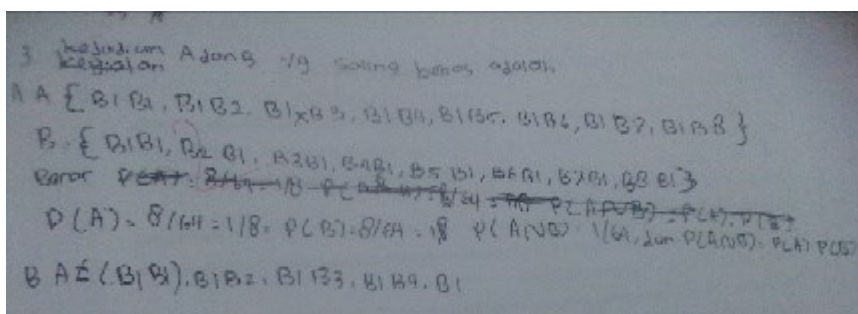 3 kejadian A dan B yg saling bebas adalah
A A { B1 B1, B1 B2, B1 x B3, B1 B4, B1 B5, B1 B6, B1 B7, B1 B8 }
B. { B1 B1, B2 B1, B3 B1, B4 B1, B5 B1, B6 B1, B7 B1, B8 B1 }
P(A) = 8/64 = 1/8
P(A) = 8/64 = 1/8 = P(B) = 8/64 = 1/8 P(A∩B) 1/64, dan P(A∩B) = P(A) P(B)
B A = (B1 B1), B1 B2, B1 B3, B1 B4, B1